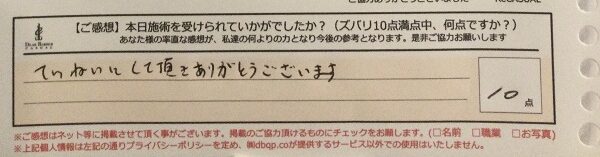 【ご感想】本日施術を受けられていかがでしたか？（ズバリ10点満点中、何点ですか？）
あなた様の率直な感想が、私達の何よりの力となり今後の参考となります。是非ご協力お願いします
ていねいにして頂きありがとうございます
10点
※ご感想はネット等に掲載させて頂く事がございます。掲載のご協力頂けるものにチェックをお願します。（□名前　□職業　□お写真）
※上記個人情報は左記の通りプライバシーポリシーを定め、㈱dbqp.coが提供するサービス以外での使用はいたしません。